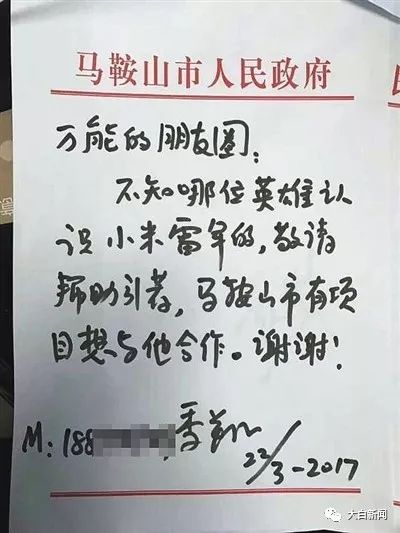 马鞍山市人民政府
万能的朋友圈:
不知哪位英雄认
识小米雷军的,敬请
帮助引荐,马鞍山市有项
目想与他合作。谢谢!
M:188 季翔
22/3-2017
大白新闻